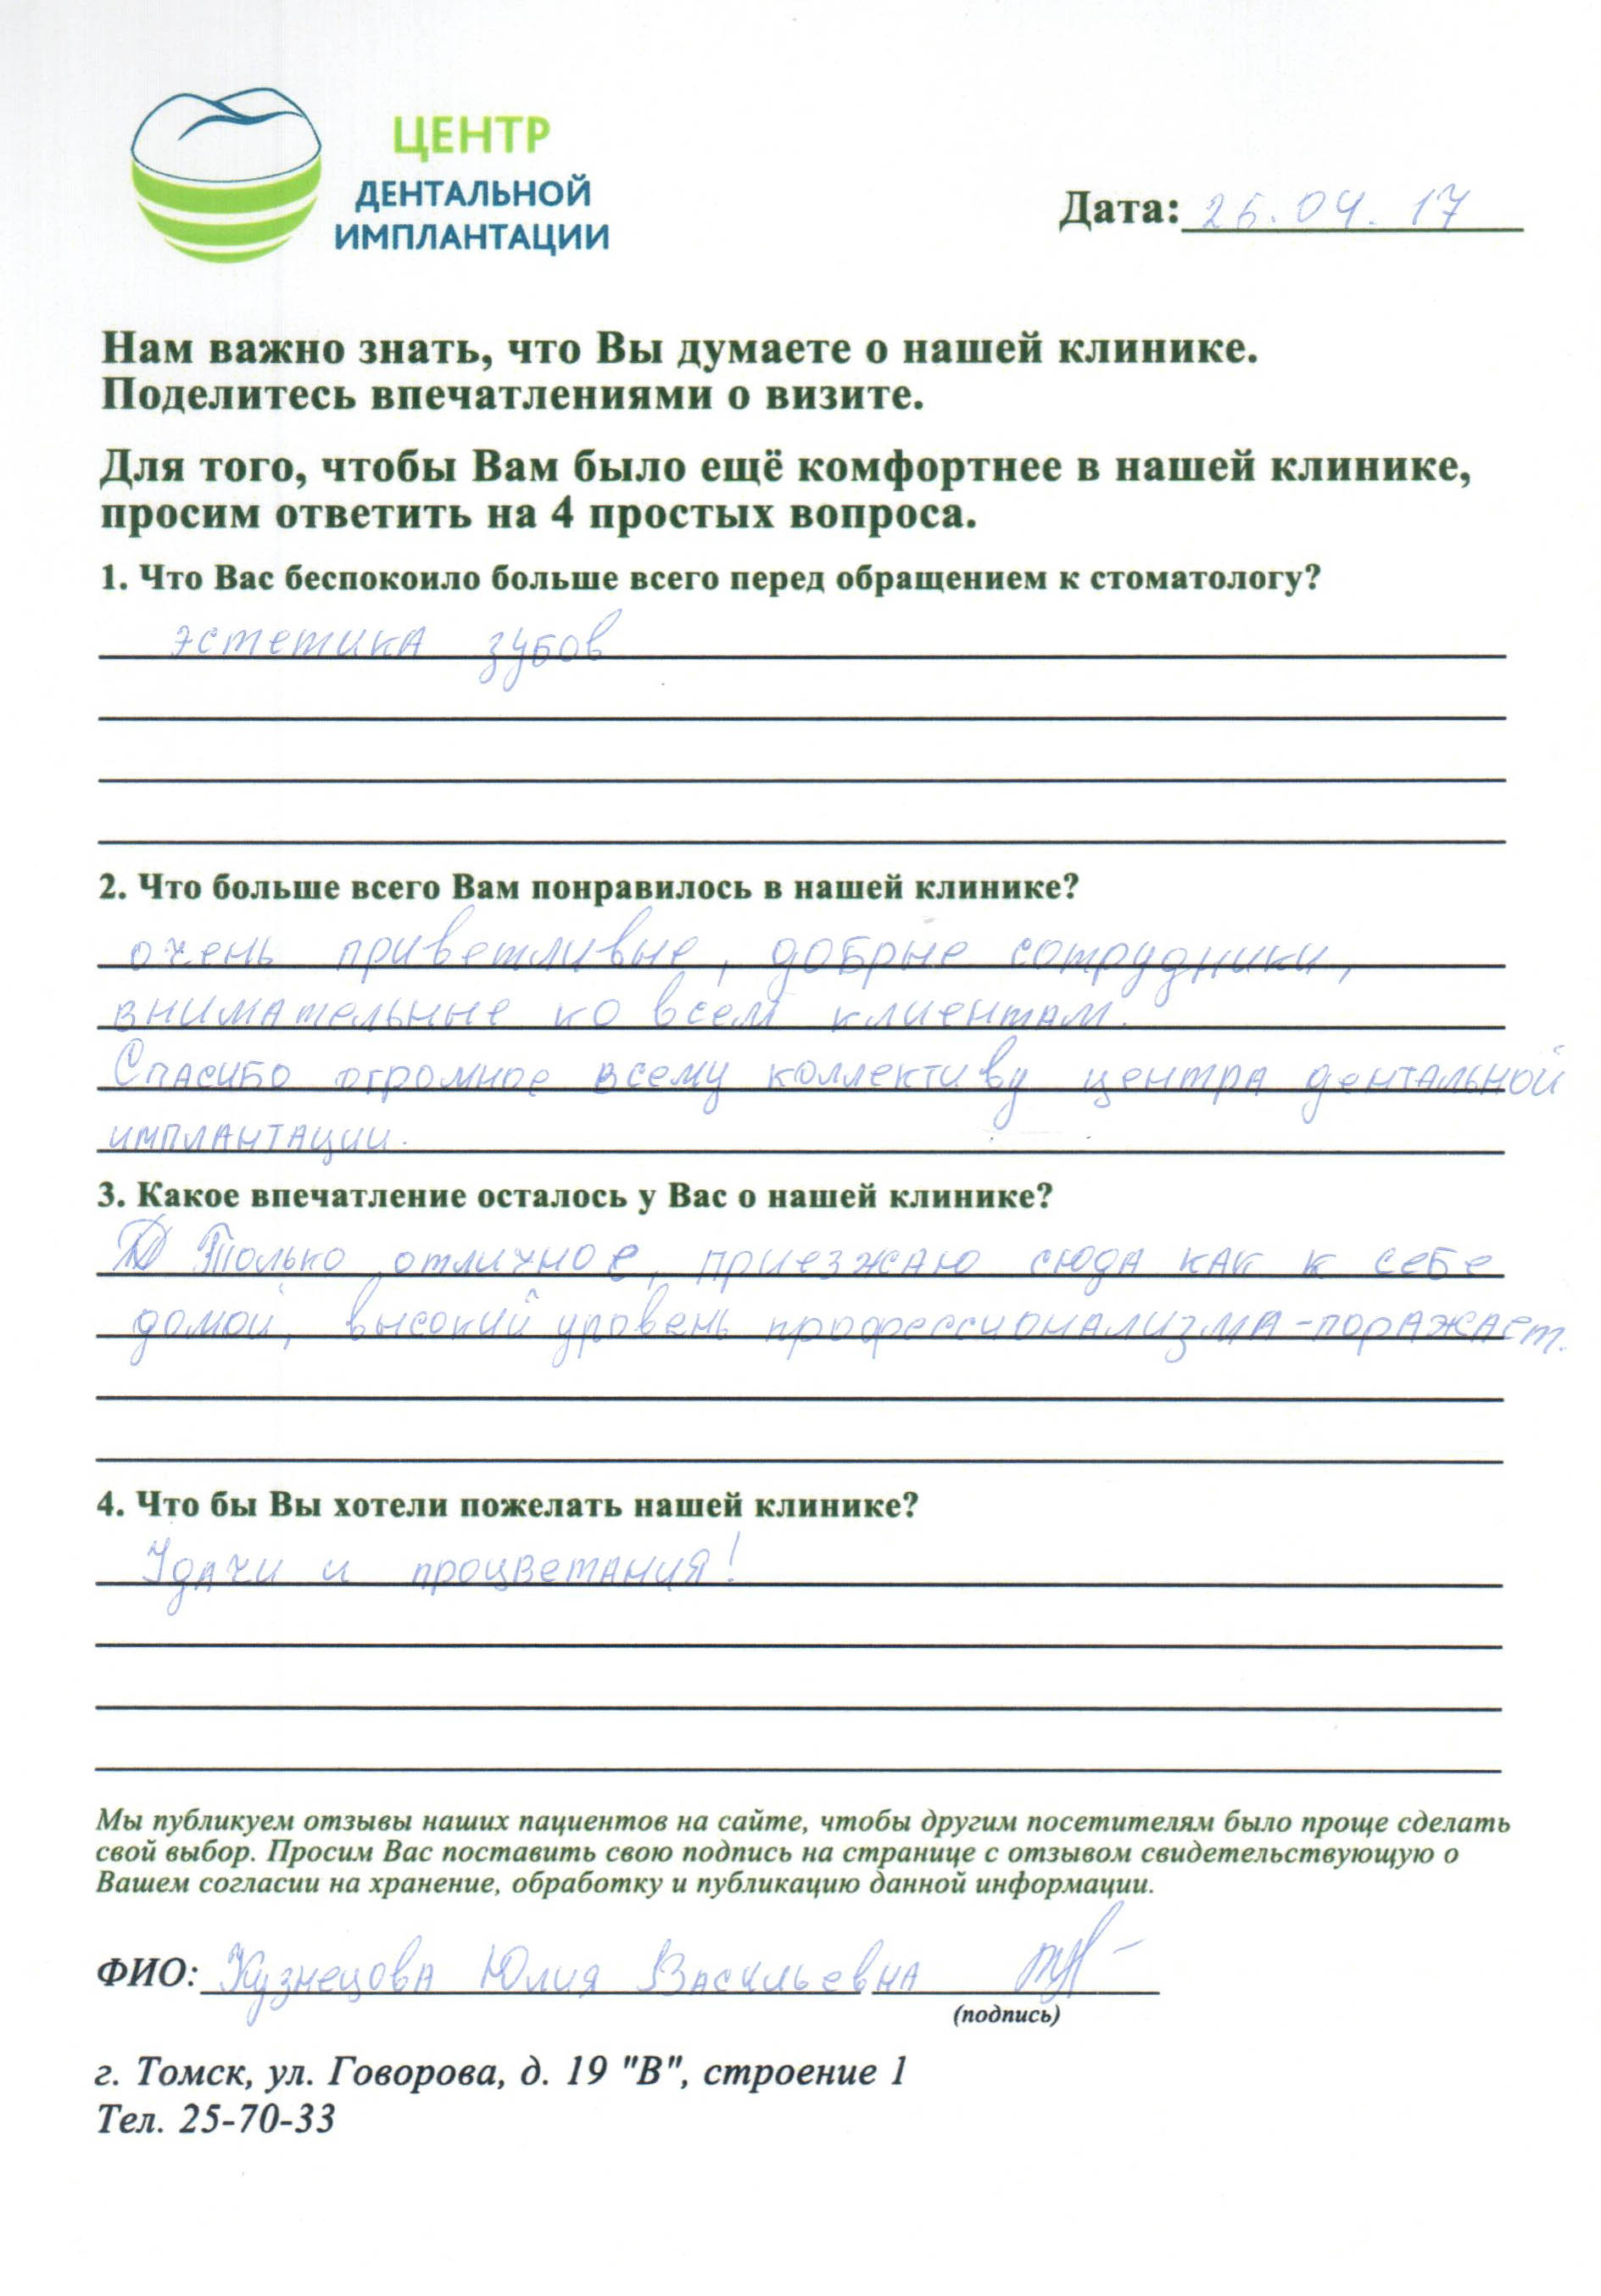 ЦЕНТР
ДЕНТАЛЬНОЙ
ИМПЛАНТАЦИИ
Дата: 26.04.17
Нам важно знать, что Вы думаете о нашей клинике.
Поделитесь впечатлениями о визите.
Для того, чтобы Вам было ещё комфортнее в нашей клинике,
просим ответить на 4 простых вопроса.
1. Что Вас беспокоило больше всего перед обращением к стоматологу?
эстетика зубов
2. Что больше всего Вам понравилось в нашей клинике?
очень приветливые, добрые сотрудники,
внимательные ко всем клиентам.
Спасибо огромное всему коллективу центра дентальной
имплантации.
3. Какое впечатление осталось у Вас о нашей клинике?
Только отличное, приезжаю сюда как к себе
домой, высокий уровень профессионализма-поражает.
4. Что бы Вы хотели пожелать нашей клинике?
Удачи и процветания!
Мы публикуем отзывы наших пациентов на сайте, чтобы другим посетителям было проще сделать
свой выбор. Просим Вас поставить свою подпись на странице с отзывом свидетельствующую о
Вашем согласии на хранение, обработку и публикацию данной информации.
ФИО: Кузнецова Юлия Васильевна
(подпись)
г. Томск, ул. Говорова, д. 19 "В", строение 1
Тел. 25-70-33